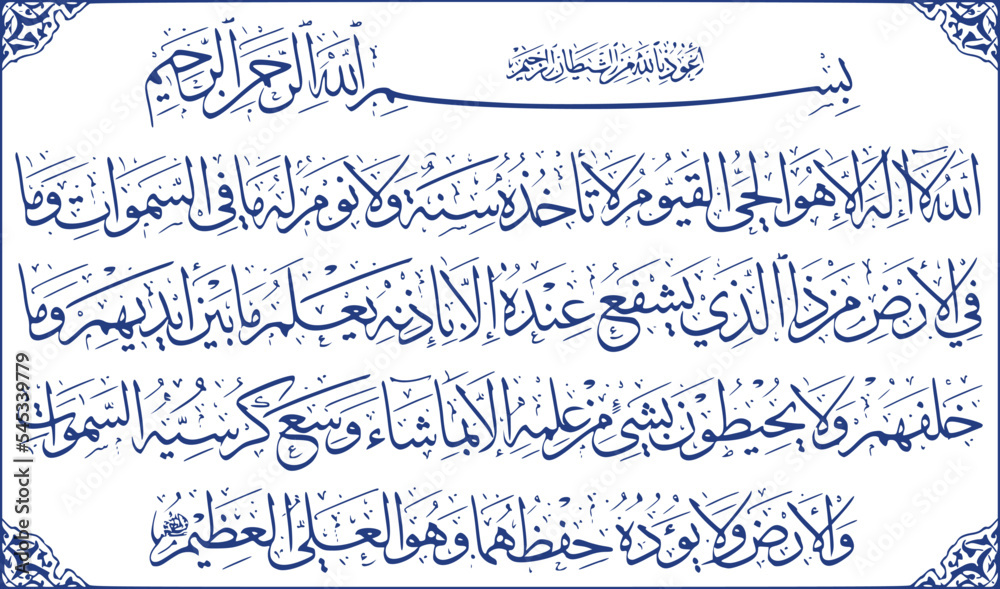 أعوذ بالله من الشيطان الرجيم
بسم الله الرحمن الرحيم
الله لا إله إلا هو الحي القيوم لا تأخذه سنة ولا نوم له ما في السموات وما
في الأرض من ذا الذي يشفع عنده إلا بإذنه يعلم ما بين أيديهم وما
خلفهم ولا يحيطون بشيء من علمه إلا بما شاء وسع كرسيه السموات
والأرض ولا يؤده حفظهما وهو العلي العظيم
Adobe Stock | #545339779